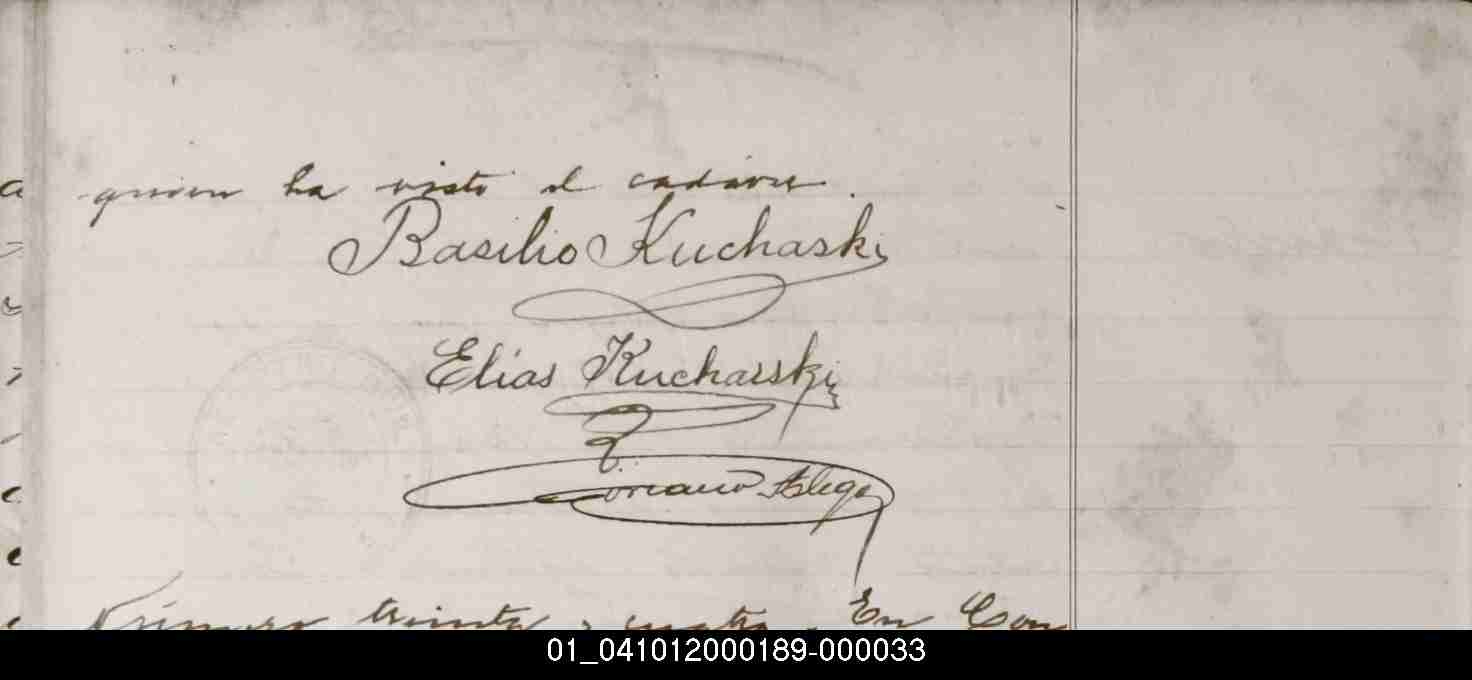 quien ha visto el cadáver.
Basilio Kuchaski
Elías Kucharski
Número treinta y cuatro. En Con
01_041012000189-000033